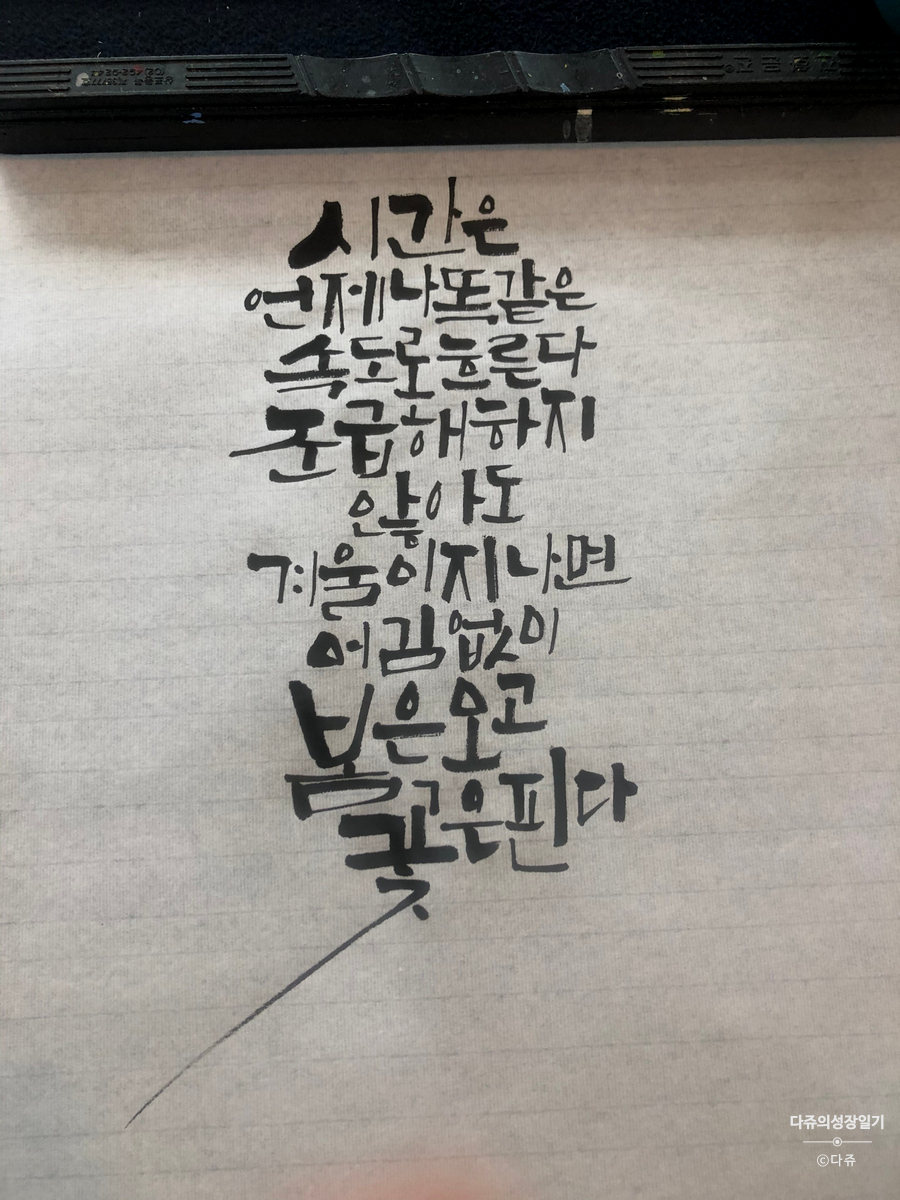 시간은
언제나똑같은
속도로흐른다
조급해하지
않아도
겨울이지나면
어김없이
봄은오고
꽃은핀다
다쥬의성장일기
©다쥬